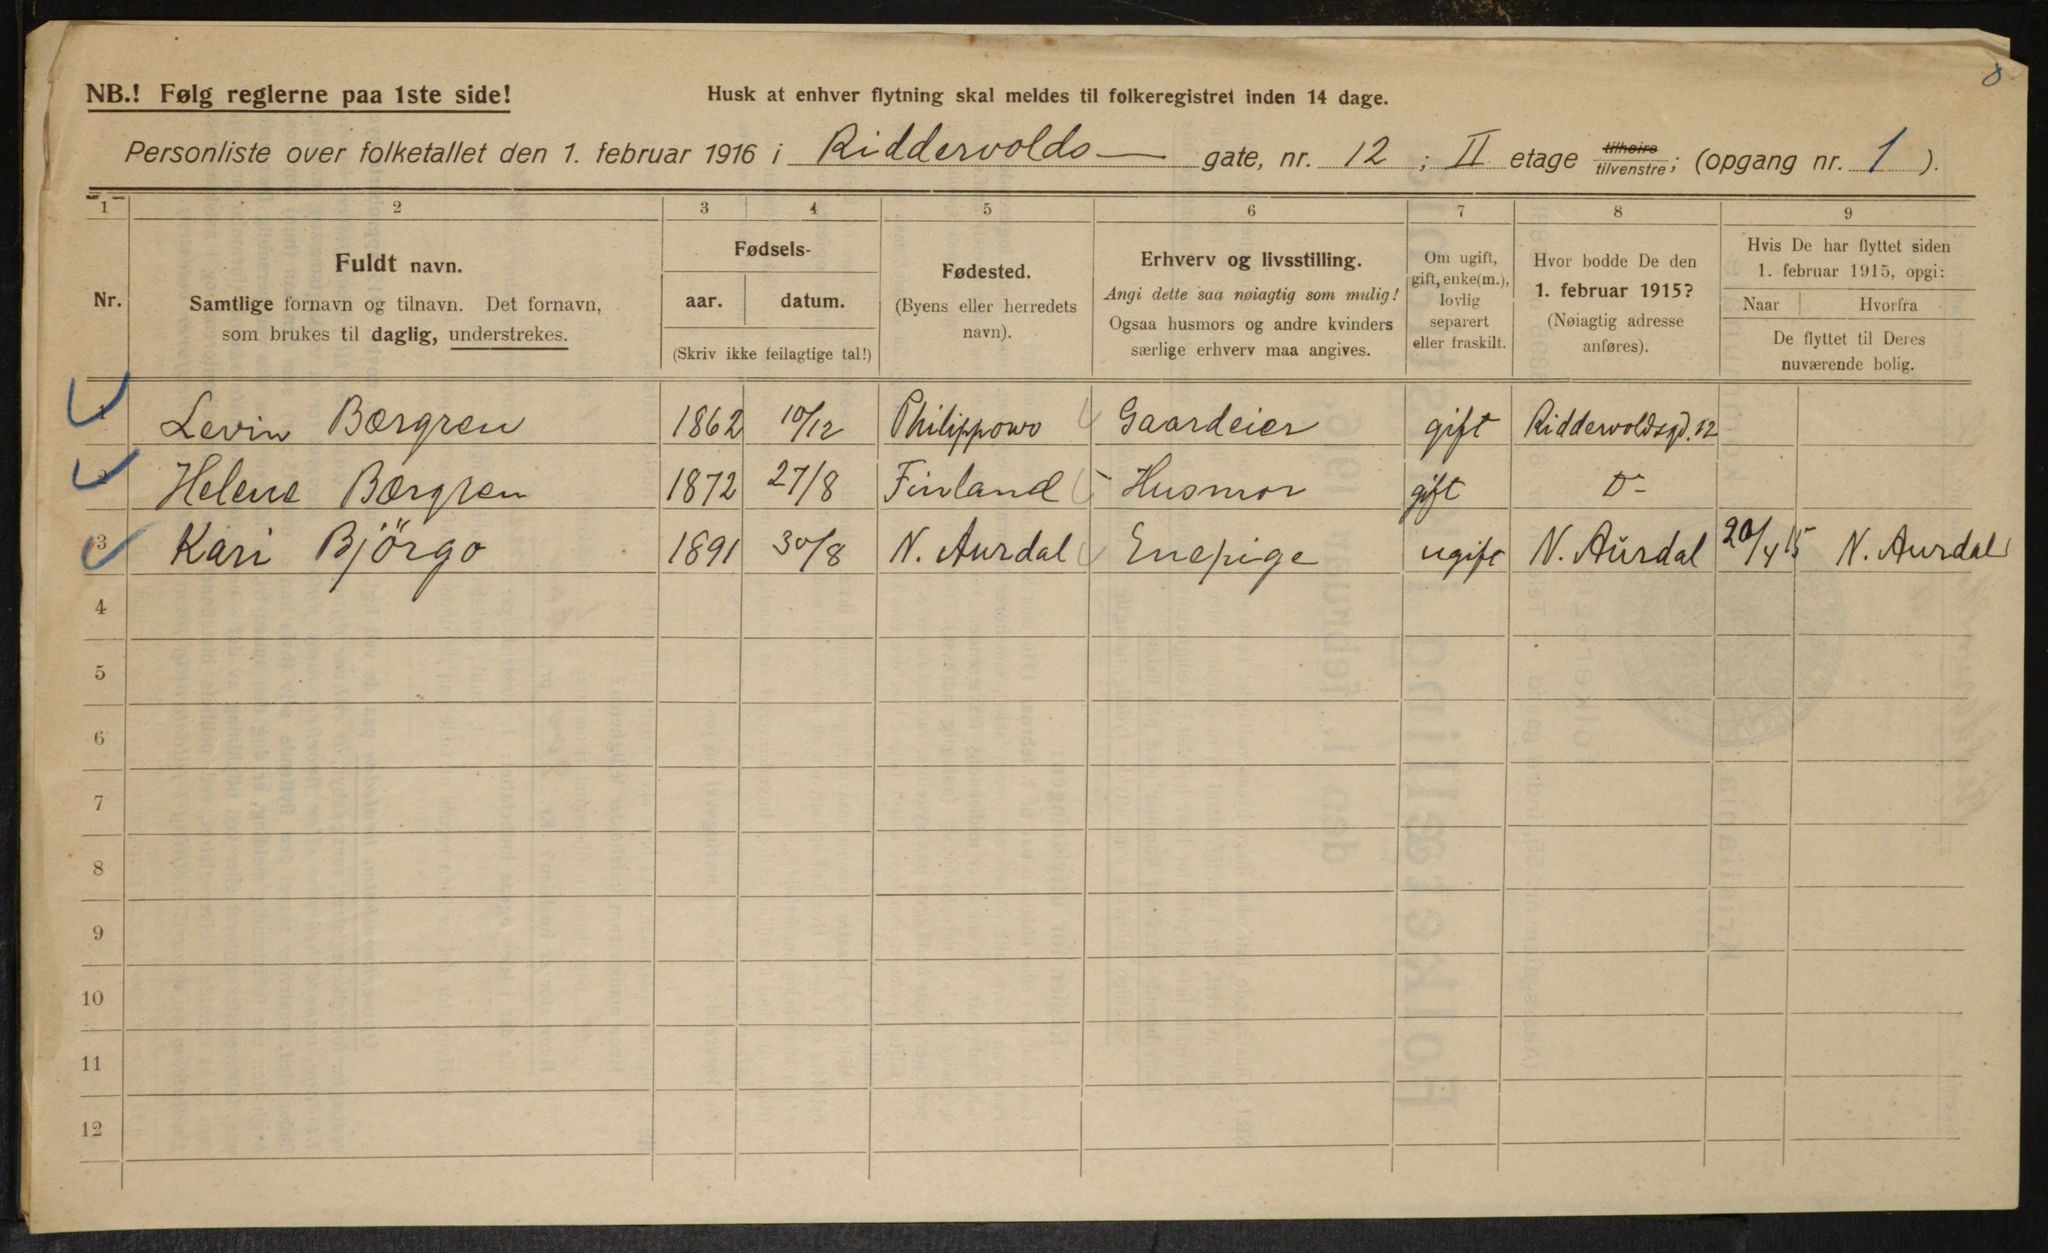 NB.! Følg reglerne paa 1ste side!
Husk at enhver flytning skal meldes til folkeregistret inden 14 dage.
Personliste over folketallet den 1. februar 1916 i Riddervolds gate, nr. 12; II etage tilhøire/tilvenstre; (opgang nr. 1).
1 2 3 4 5 6 7 8 9
Nr.
Fuldt navn.
Samtlige fornavn og tilnavn. Det fornavn,
som brukes til daglig, understrekes.
Fødsels-
aar. datum.
(Skriv ikke feilagtige tal!)
Fødested.
(Byens eller herredets
navn).
Erhverv og livsstilling.
Angi dette saa nøiagtig som mulig!
Ogsaa husmors og andre kvinders
særlige erhverv maa angives.
Om ugift,
gift, enke(m.),
lovlig
separert
eller fraskilt.
Hvor bodde De den
1. februar 1915?
(Nøiagtig adresse
anføres).
Hvis De har flyttet siden
1. februar 1915, opgi:
Naar Hvorfra
De flyttet til Deres
nuværende bolig.
1 Levin Bærgren 1862 10/12 Philippowo Gaardeier gift Riddervoldsgd. 12
2 Helene Bærgren 1872 27/8 Finland Husmor gift Do
3 Kari Björgo 1891 30/8 N. Aurdal Enepige ugift N. Aurdal 20/4 15 N. Aurdal
4
5
6
7
8
9
10
11
12